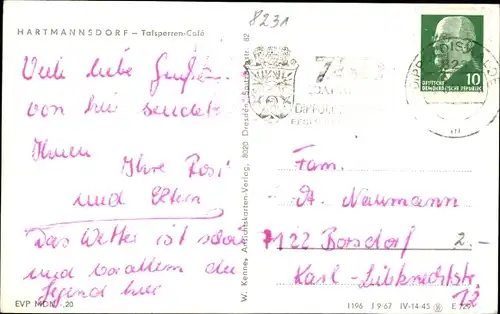 8231
HARTMANNSDORF – Talsperren-Café
Viele liebe Grüße
von hier sendet
Ihnen
Ihre Rosi
und Eltern
Das Wetter ist schön
und vor allem die
Gegend hier
EVP MDN 20
W. Kenne, Ansichtskarten-Verlag, 8020 Dresden, 82
10
DEUTSCHE DEMOKRATISCHE REPUBLIK
Fam.
A. Naumann
7122 Borsdorf
2.-
Karl-Liebknechtstr.
12
1196 J 9-67 IV-14-45 E 729